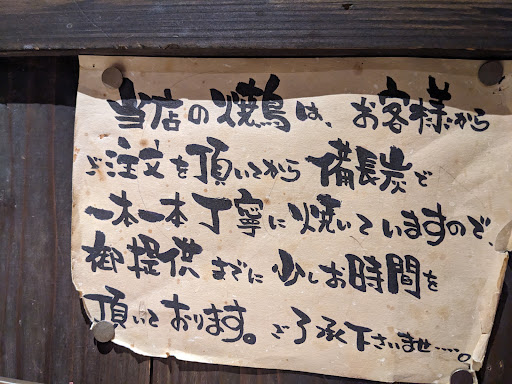 当店の焼鳥は、お客様から
ご注文を頂いてから備長炭で
一本一本丁寧に焼いていますので、
御提供までに少しお時間を
頂いております。ご了承下さいませ……。